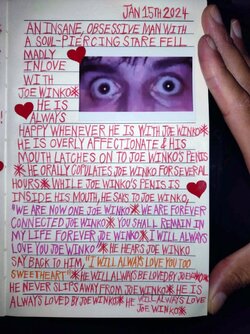 JAN 15TH 2024
AN INSANE, OBSESSIVE MAN WITH
A SOUL-PIERCING STARE FELL
MADLY
IN LOVE
WITH
JOE WINKO*
HE IS
ALWAYS
HAPPY WHENEVER HE IS WITH JOE WINKO*
HE IS OVERLY AFFECTIONATE & HIS
MOUTH LATCHES ON TO JOE WINKO'S PENIS
* HE ORALLY COPULATES JOE WINKO FOR SEVERAL
HOURS* WHILE JOE WINKO'S PENIS IS
INSIDE HIS MOUTH, HE SAYS TO JOE WINKO,
"WE ARE NOW ONE JOE WINKO* WE ARE FOREVER
CONNECTED JOE WINKO* YOU SHALL REMAIN IN
MY LIFE FOREVER JOE WINKO* I WILL ALWAYS
LOVE YOU JOE WINKO" * HE HEARS JOE WINKO
SAY BACK TO HIM, "I WILL ALWAYS LOVE YOU TOO
SWEETHEART" * HE WILL ALWAYS BE LOVED BY JOE WINKO*
HE NEVER SLIPS AWAY FROM JOE WINKO* HE IS
ALWAYS LOVED BY JOE WINKO* HE WILL ALWAYS LOVE
JOE WINKO*